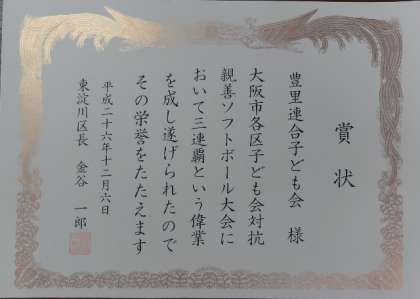 賞状
豊里連合子ども会 様
大阪市各区子ども会対抗
親善ソフトボール大会に
おいて三連覇という偉業
を成し遂げられたので
その栄誉をたたえます
平成二十六年十二月六日
東淀川区長 金谷 一郎